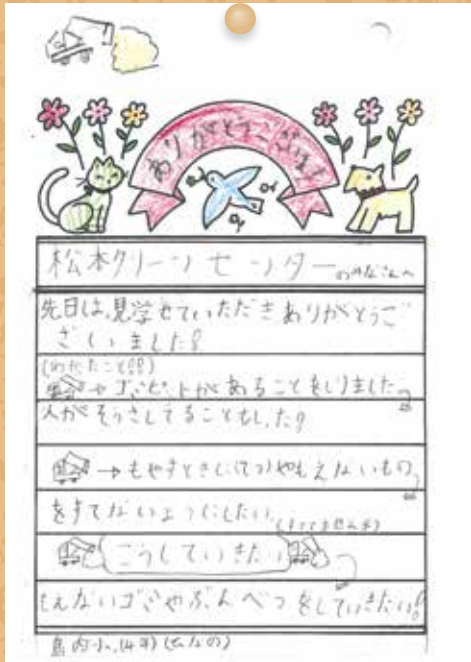 ありがとうございます
松本クリーンセンターのみなさんへ
先日は、見学させていただきありがとうご
ざいました!
(わかったこと!!)
やゴミピットがあることをしりました
人がそうさしてることもした!
→もやすときに(てつ)やもえないもの
をすてないようにしたい。
こうしていきたい
もえないゴミやぶんべつをしていきたい!
島内小(4年)